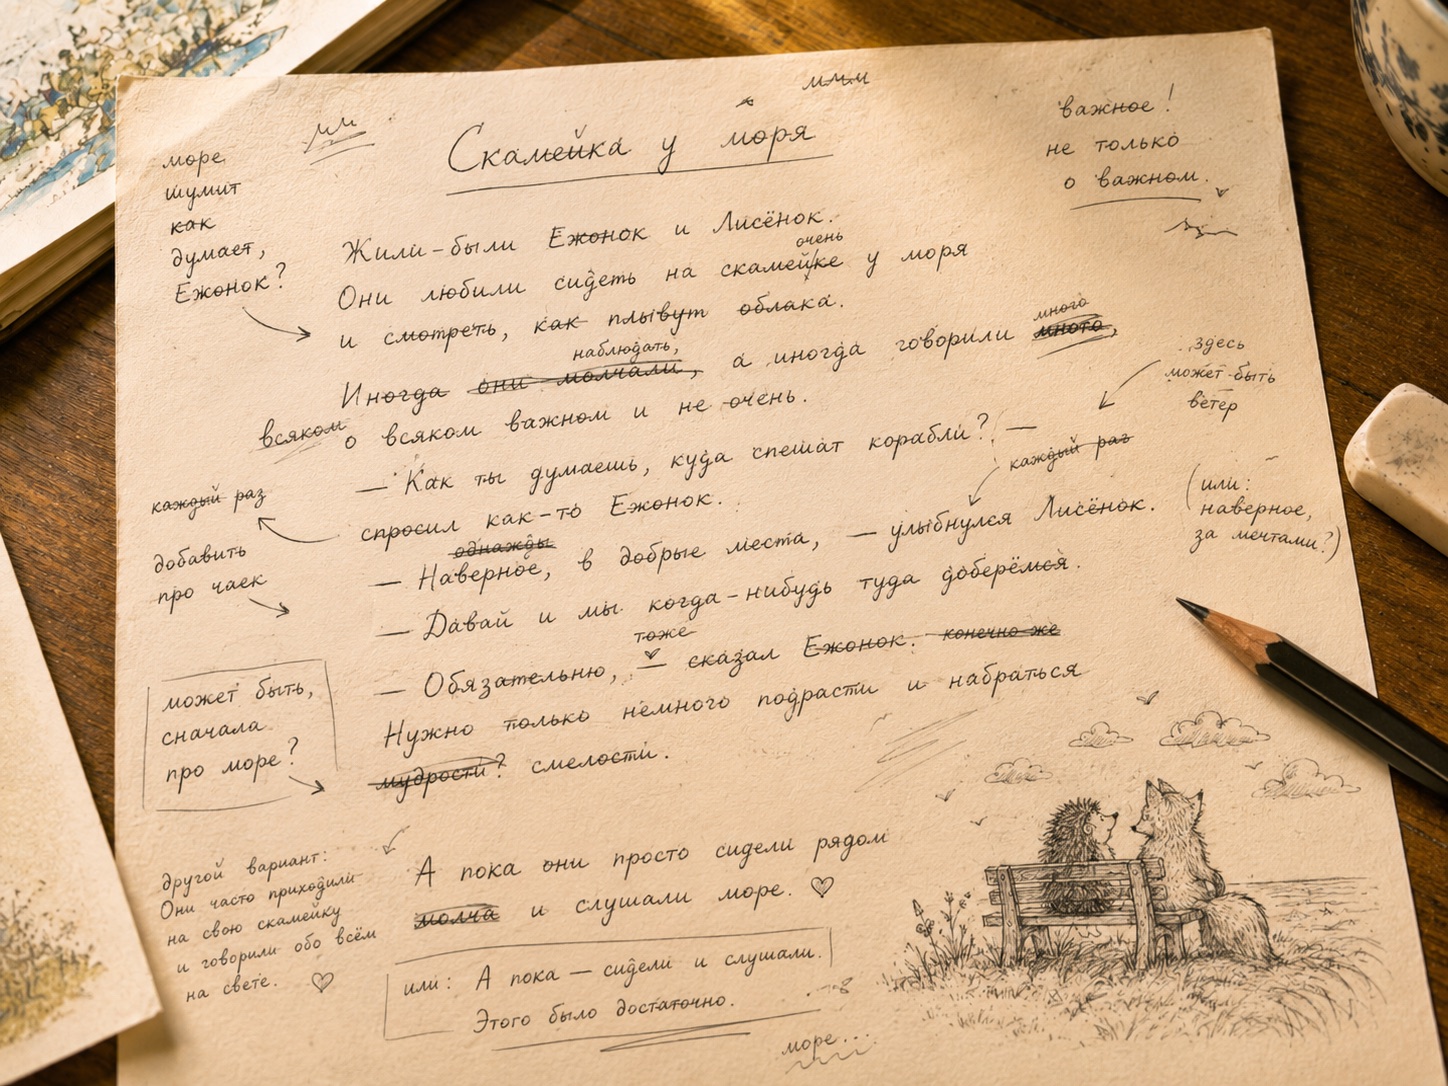 Скамейка у моря
море
шумит
как
думает,
Ежонок?
важное!
не только
о важном.
Жили-были Ежонок и Лисёнок.
очень
Они любили сидеть на скамейке у моря
и смотреть, как плывут облака.
наблюдать,
много
Иногда они молчали, а иногда говорили много,
всяком
о всяком важном и не очень.
здесь
может быть
ветер
— Как ты думаешь, куда спешат корабли? —
каждый раз
спросил как-то Ежонок.
каждый раз
однажды
— Наверное, в добрые места, — улыбнулся Лисёнок.
(или:
наверное,
за мечтами?)
добавить
про чаек
— Давай и мы когда-нибудь туда доберёмся.
тоже
— Обязательно, — сказал Ежонок. конечно же
Нужно только немного подрасти и набраться
мудрости? смелости.
может быть,
сначала
про море?
А пока они просто сидели рядом
молча и слушали море.
другой вариант:
Они часто приходили
на свою скамейку
и говорили обо всём
на свете.
или: А пока — сидели и слушали.
Этого было достаточно.
море...